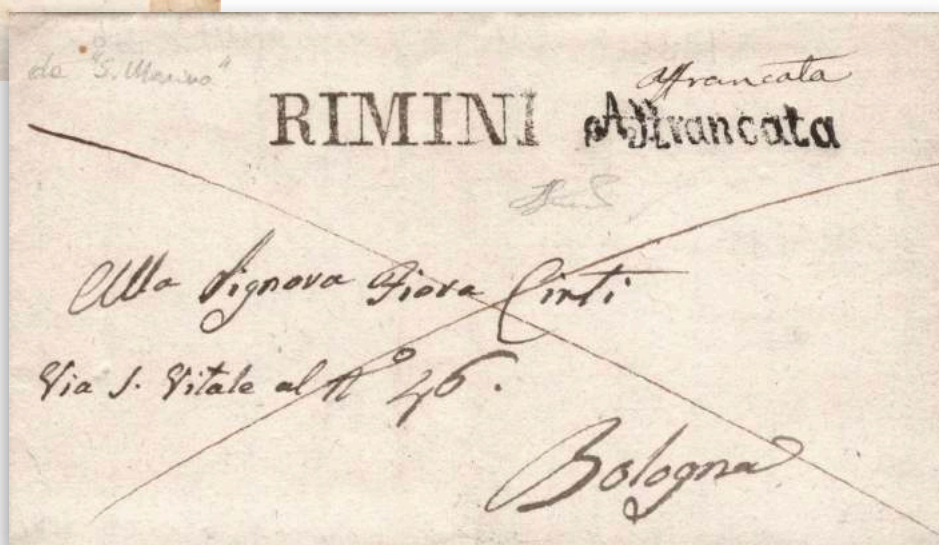 da "S. Marino"
affrancata
RIMINI Affrancata
Alla Signora Fiora Cinti
Via S. Vitale al N° 46.
Bologna